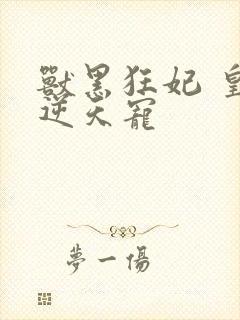 獸黑狂妃 皇
逆天寵
夢一傷